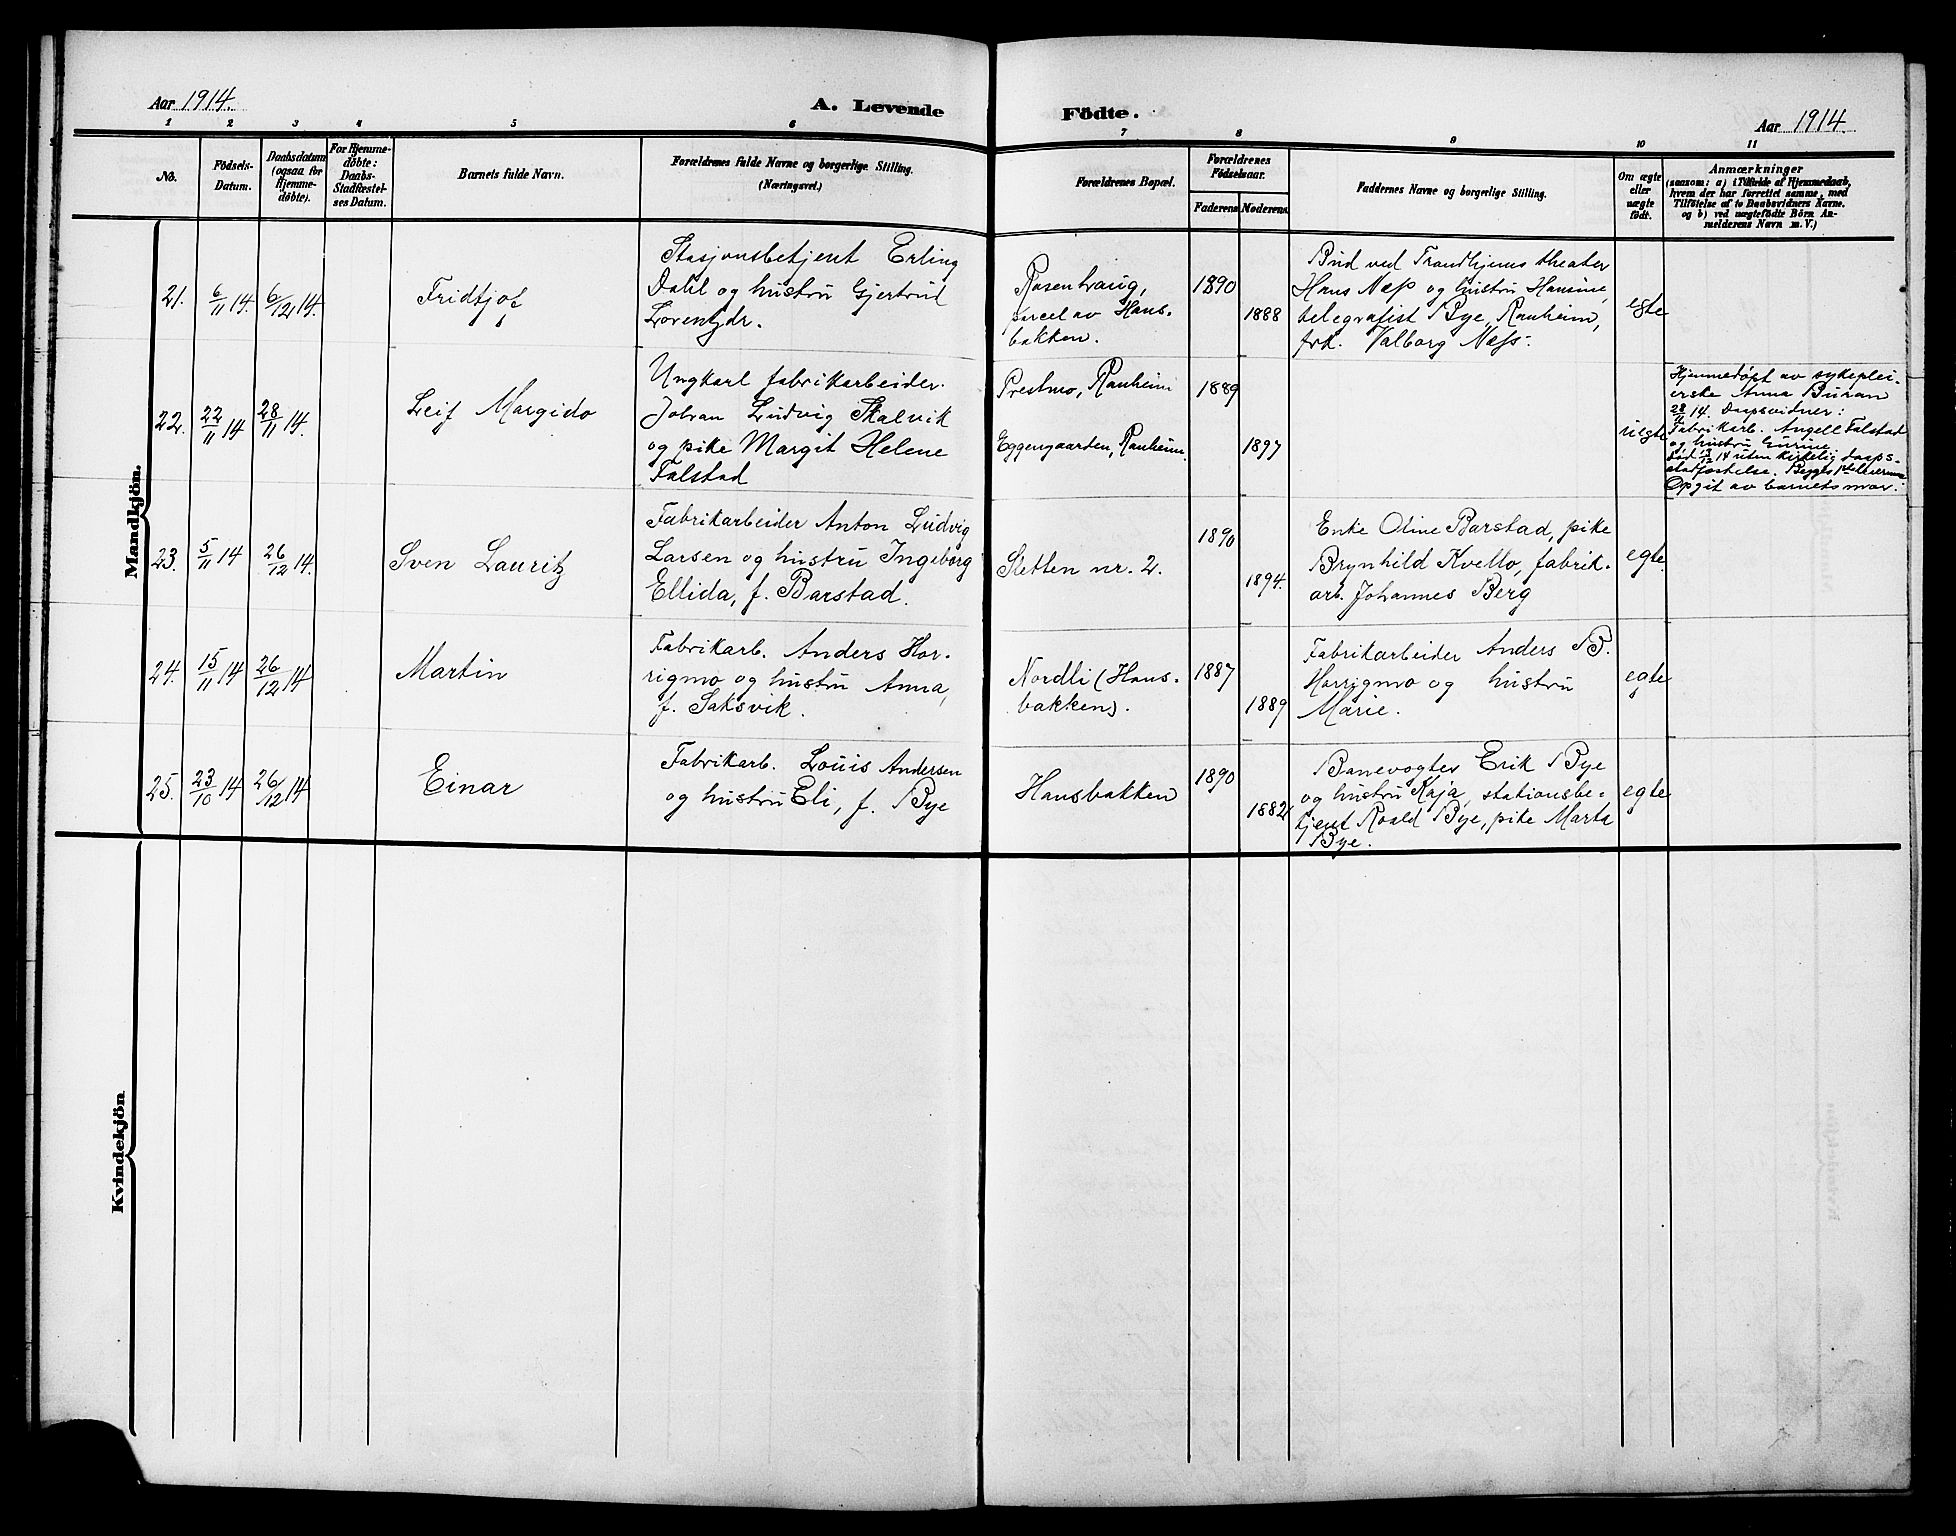 Aar 1914.
A. Levende Födte.
Aar 1914.
1 2 3 4 5 6 7 8 9 10 11
No.
Födsels-
Datum.
Daabsdatum
(ogsaa for
Hjemme-
döbte).
For Hjemme-
döbte:
Daabs-
Stadfæstel-
ses Datum.
Barnets fulde Navn.
Forældrenes fulde Navne og borgerlige Stilling.
(Næringsvei.)
Forældrenes Bopæl.
Forældrenes
Födselsaar.
Faderens
Moderens
Faddernes Navne og borgerlige Stilling.
Om ægte
eller
uægte
födt.
Anmærkninger
(saasom: a) i Tilfælde af Hjemmedaab,
hvem der har forrettet samme, med
Tilföielse af to Daabsvidners Navne,
og b) ved uægtefödte Börn An-
melderens Navn m. V.)
Mandkjön.
21.
6/11 14.
6/12 14.
Fridtjof
Stasjonsbetjent Erling
Dahl og hustru Gjertrud
Lorentzdr.
Rosenhaug,
parcel av Hans-
bakken.
1890
1888
Bud ved Trondhjems theater
Hans Næss og hustru Hansine,
telegrafist Bye, Ranheim,
frk. Valborg Næss.
egte
22.
22/11 14
28/11 14.
Leif Margido
Ungkarl fabrikarbeider
Johan Ludvig Skalvik
og pike Margit Helene
Falstad
Prestmo, Ranheim
Eggengaarden, Ranheim.
1889
1897
uegte
Hjemmedøpt av sykeplei-
erske Anna Buran
28/11 14. Daapsvidner:
Fabrikarb. Angell Falstad
og hustru Gurine
død 13/12 14 uten kirkelig daaps-
stadfæstelse. Begges 1ste leiermaal
Opgit av barnets mor.
23.
5/11 14
26/12 14.
Sven Lauritz
Fabrikarbeider Anton Ludvig
Larsen og hustru Ingeborg
Ellida, f. Barstad.
Sletten nr. 2.
1890
1894.
Enke Oline Barstad, pike
Brynhild Kvello, fabrik-
arb. Johannes Berg
egte.
24.
15/11 14
26/12 14
Martin
Fabrikarb. Anders Hor-
rigmo og hustru Anna,
f. Saksvik.
Nordli (Hans-
bakken).
1887
1889
Fabrikarbeider Anders B.
Horrigmo og hustru
Marie.
egte
25.
23/10 14
26/12 14
Einar
Fabrikarb. Louis Andersen
og hustru Eli, f. Bye
Hansbakken
1890
1882
Banevogter Erik Bye
og hustru Kaja, stationsbe-
tjent Roald Bye, pike Marta
Bye.
egte
Kvindekjön